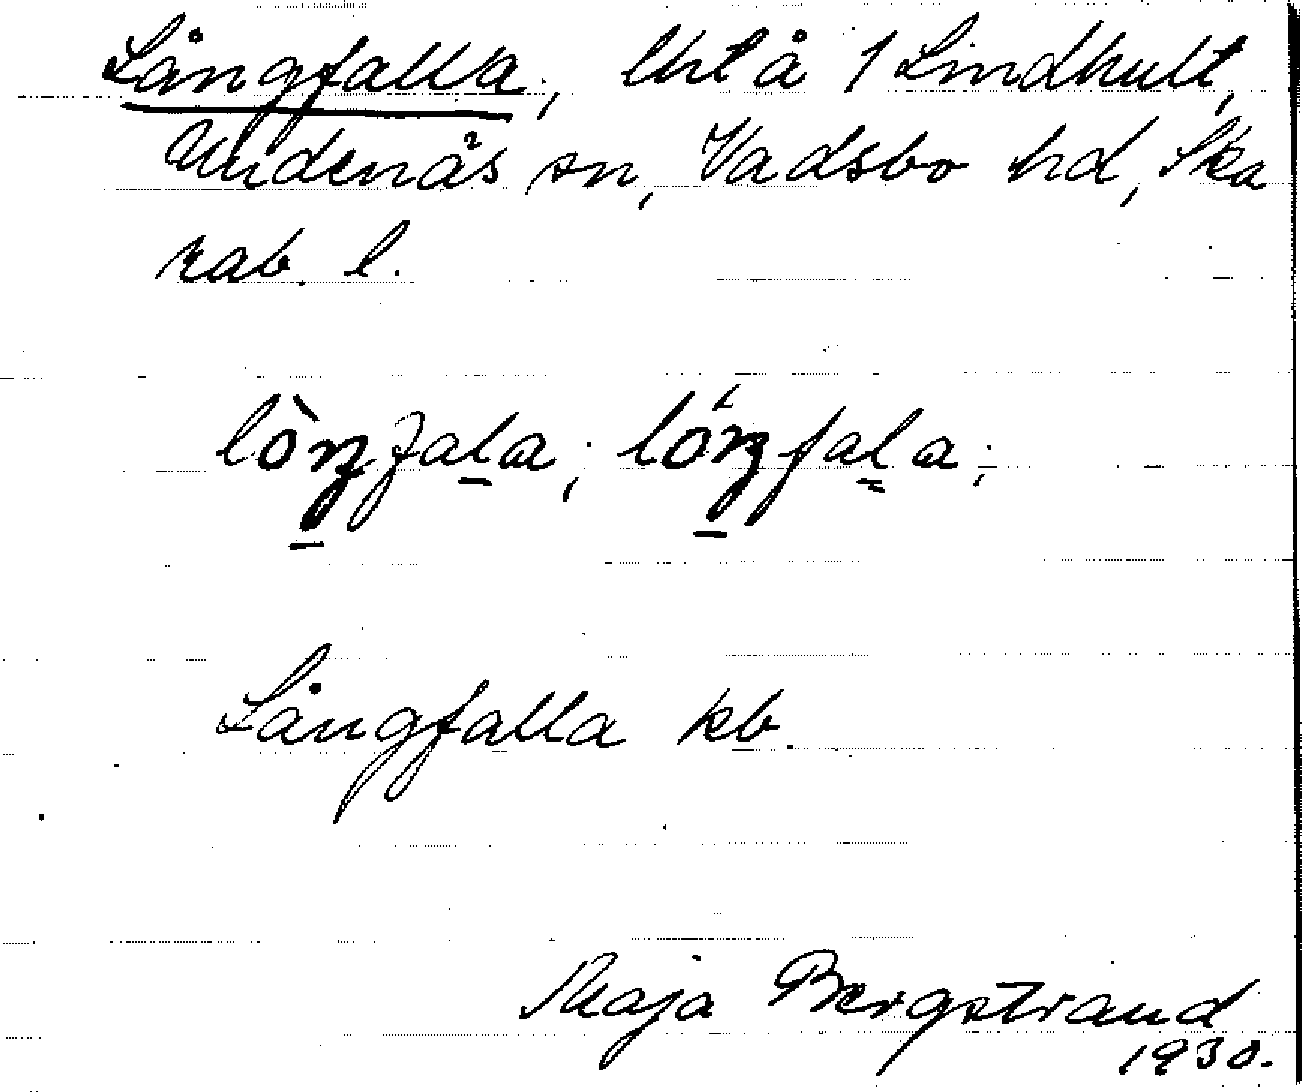 Långfalla, lht å 1 Lindhult,
Undenäs sn, Vadsbo hd, Ska
rab. l.
lòŋfala; lóŋfala;
Långfalla kb.
Maja Bergstrand
1930.